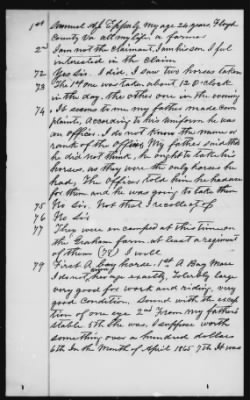 1st Samuel Epperly my age 24 years Floyd
County Va all my life a farmer
2nd I am not the claimant, I am his son I feel
interested in the claim
72 Yes Sir. I did, I saw two horses taken
73 The 1st one was taken about 12 O clock
in the day, the other one in the evening
74 It seems to me my father made com
plaint, According to his uniform he was
an officer, I do not know the name or
rank of the officer My father said that
he did not think he ought to take his
horses, as they were the only horses he
had, The officer told him he had use
for them and he was going to take them
75 No Sir. Not that I recollect of
76 No Sir
77 They were encamped at this time on
the Graham farm, at least a regiment
of them (78) I will
79 First A bay horse. 2nd A Bay Mare
I do not her age exactly, Tolerbly large
very good for work and riding, very
good condition, Sound with the excep
tion of one eye 2nd From my fathers
stable 5th She was, I suppose worth
something over a hundred dollars
6th In the Month of April 1865 7th It was